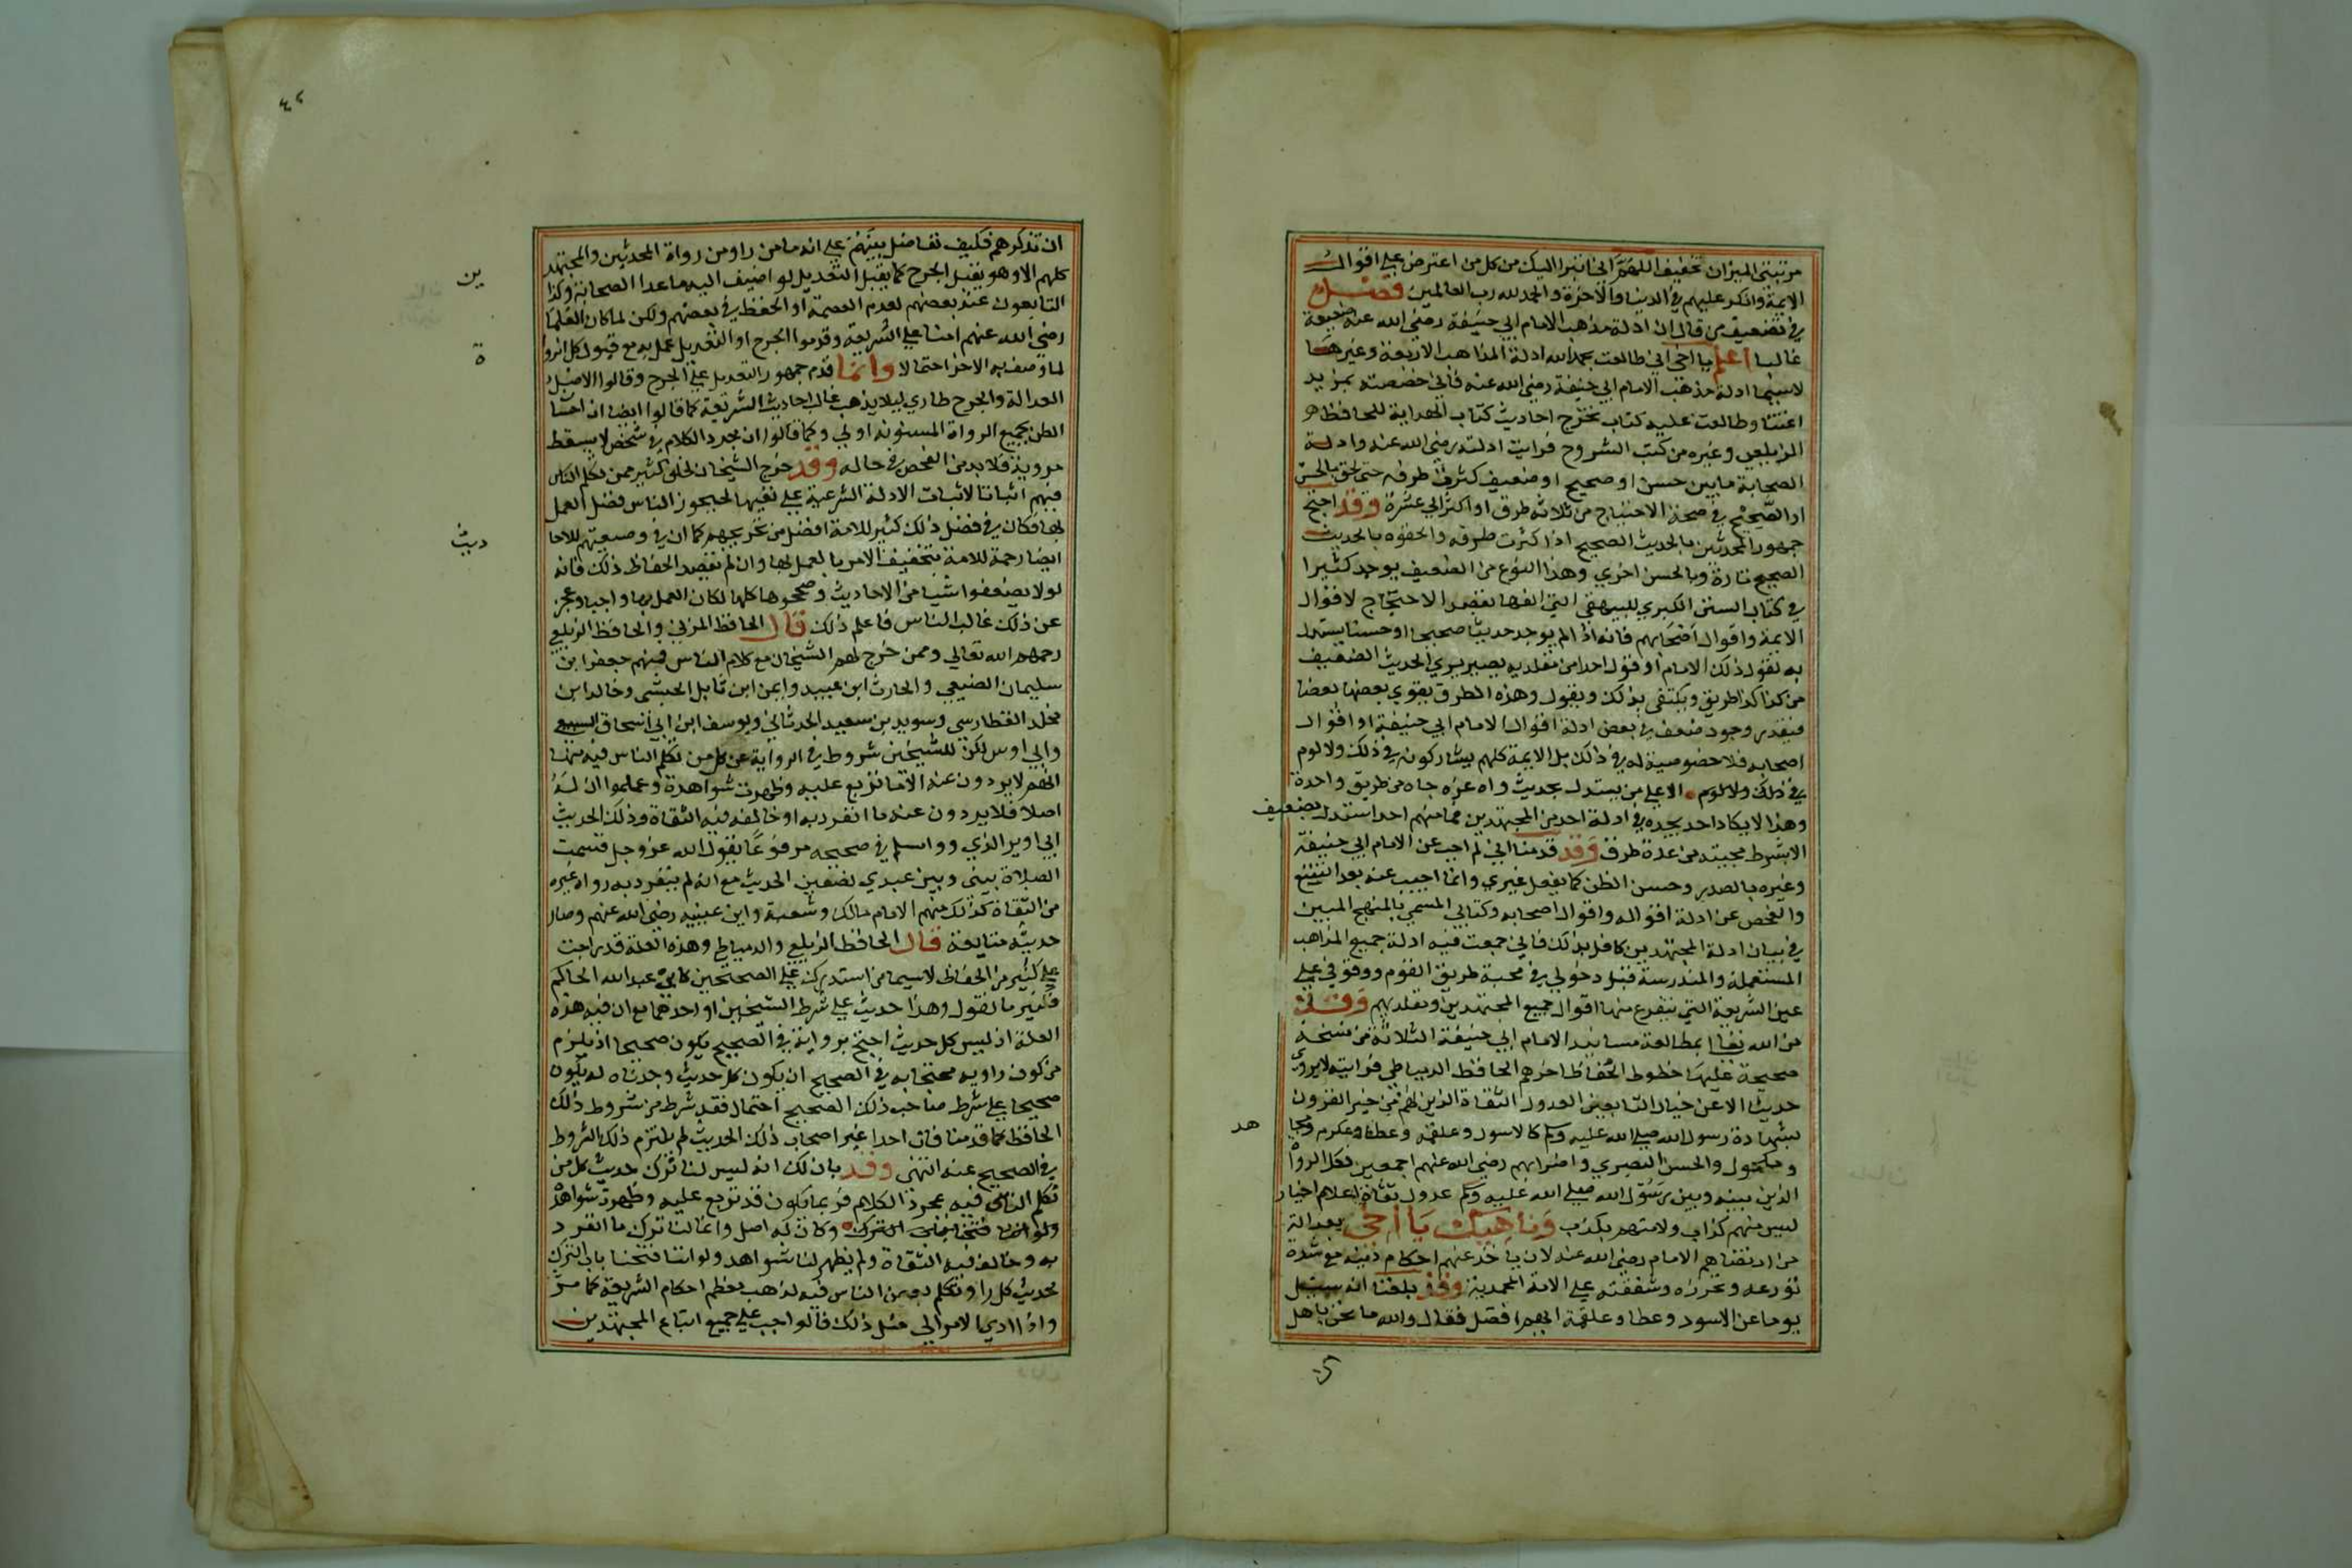 مرتبتي الميزان تخفيف اللهم اني ابترا اليك من كل من اعترض علي اقوال
الايمة وانكر عليهم في الدنيا والاخرة والحمد لله رب العالمين فصل
في تضعيف من قال ان ادلة مذهب الامام ابي حنيفة رضي الله عنه ضعيفة
غالبا اعلم يا اخي اني طالعت بحمد الله ادلة المذاهب الاربعة وغيرها
لاسيما ادلة مذهب الامام ابي حنيفة رضي الله عنه فاني خصصته بمزيد
اعتنا وطالعت عليه كتاب تخريج احاديث كتاب الهداية للحافظ
الزيلعي وغيره من كتب الشروح فرايت ادلته رضي الله عنه وادلة
الصحابة مابين حسن او صحيح او ضعيف كثرت طرقه حتي لحق بالحسن
او الصحيح في صحة الاحتجاج من ثلاثة طرق او اكثر الي عشرة وقد احتج
جمهور المحدثين بالحديث الصحيح اذا كثرت طرقه والحقوه بالحديث
الصحيح تارة وبالحسن اخري وهذا النوع من الضعيف يوجد كثيرا
في كتاب السنن الكبري للبيهقي التي الفها بقصد الاحتجاج لاقوال
الايمة واقوال اصحابهم فانه اذا لم يوجد حديثا صحيحا او حسنا يستدل
به لقول ذلك الامام او قول احد من مقلديه يصير يروي الحديث الضعيف
من كذا كذا طريق ويكتفي بذلك ويقول وهذه الطرق يقوي بعضها بعضا
فبتقدير وجود ضعف في بعض ادلة اقوال الامام ابي حنيفة او اقوال
اصحابه فلا خصوصية له في ذلك بل الايمة كلهم يشاركونه في ذلك ولا لوم
في ذلك ولا لوم الا علي من يستدل بحديث واه غره جاه من طريق واحدة
وهذا لا يكاد احد يجده في ادلة احد من المجتهدين فما منهم احد استدل بضعيف
الا بشرط مجيئه من عدة طرق وقد قدمنا اني لم اجب عن الامام ابي حنيفة
وغيره بالصدر وحسن الظن كما يفعل غيري وانما اجيب عنه بعد التتبع
والفحص عن ادلة اقواله واقوال اصحابه وكتابي المسمي بالمنهج المبين
في بيان ادلة المجتهدين كافل بذلك فاني جمعت فيه ادلة جميع المذاهب
المستعملة والمندرسة قبل دخولي في محبة طريق القوم ووقوفي علي
عين الشريعة التي يتفرع منها اقوال جميع المجتهدين ومقلديهم وقد من
من الله تعالي بمطالعة مسانيد الامام ابي حنيفة الثلاثة من نسخة
صحيحة عليها خطوط الحفاظ اخرهم الحافظ الدمياطي فرايته لا يروي
حديثا الا عن خيار التابعين العدول الثقاة الذين هم من خير القرون
بشهادة رسول الله صلي الله عليه وسلم كالاسود وعلقمة وعطا وعكرمه ومجا
هد
ومكحول والحسن البصري واضرابهم رضي الله عنهم اجمعين فكل الرواة
الذين بينه وبين رسول الله صلي الله عليه وسلم عدول ثقاة اعلام اخيار
ليس منهم كذاب ولا متهم بكذب وناهيك يا اخي بعدالة
من ارتضاهم الامام رضي الله عنه لان ياخذ عنهم احكام دينه مع شدة
تورعه وتحرزه وشفقته علي الامة المحمدية وقد بلغنا انه سيل
يوما عن الاسود وعطا وعلقمة ايهم افضل فقال والله ما نحن باهل
٤٦
ان نذكرهم فكيف نفاضل بينهم علي انه ما من راو من رواة المحدثين والمجتهد
ين
كلهم الا وهو يقبل الجرح كما يقبل التعديل لو اضيف اليه ما عدا الصحابة وكذا
التابعون عند بعضهم لعدم العصمة او الحفظ في بعضهم ولكن لما كان العلما
رضي الله عنهم امنا علي الشريعة وقدموا الجرح او التعديل عمل به مع قبول كل الروا
ة
لما وصف به الاخر احتمالا وانما قدم جمهور التعديل علي الجرح وقالوا الاصل
العدالة والجرح طاري ليلا يذهب غالب احاديث الشريعة كما قالوا ايضا ان احسا
الظن بجميع الرواة المستورة اولي وكما قالوا ان مجرد الكلام في شخص لا يسقط
مرويه فلا بد من الفحص في حاله وقد خرج الشيخان لخلق كثير ممن تكلم الناس
فيهم اثباتا لاثبات الادلة الشرعية علي نفيها ليحوز الناس فضل العمل
بها فكان في فضل ذلك كثير للامة افضل من تجريحهم كما ان في وضعيتهم للاحا
ديث
ايضا رحمة للامة بتخفيف الامر بالعمل بها وان لم يقصد الحفاظ ذلك فانه
لو لا يضعفوا شيا من الاحاديث وصححوها كلها لكان العمل بها واجبا وعجز
عن ذلك غالب الناس فاعلم ذلك قال الحافظ المزني والحافظ الزيلعي
رحمهم الله تعالي وممن خرج لهم الشيخان مع كلام الناس فيهم جعفر ابن
سليمان الضبعي والحارث ابن عبيد وايمن ابن نابل الحبشي وخالد ابن
مخلد القطارسي وسويد بن سعيد الحدثاني ويوسف ابن ابي اسحاق السبيعي
وابي اوس لكن للشيخين شروط في الرواية عن كل من تكلم الناس فيه منها
انهم لا يردون عنه الا ما توبع عليه وظهرت شواهدة وعلموا ان له
اصلا فلا يردون عنه ما انفرد به او خالفه فيه الثقاة وذلك الحديث
ابي اوير الذي رواه مسلم في صحيحه مرفوعا يقول الله عز وجل قسمت
الصلاة بيني وبين عبدي نصفين الحديث مع انه لم يتفرد به رواه غيره
من الثقاة كذلك منهم الامام مالك وشعبة وابن عيينه رضي الله عنهم وصار
حديثه متابعة قال الحافظ الزيلعي والدمياطي وهذه العلة قد راجت
علي كثير من الحفاظ لاسيما من استدرك علي الصحيحين كابي عبد الله الحاكم
فكثير ما نقول وهذا حديث علي شرط الشيخين او احدهما مع ان فيه هذه
العلة اذ ليس كل حديث احتج برواية في الصحيح يكون صحيحا اذ يلزم
من كون راويه محتجا به في الصحيح ان يكون كل حديث وجدناه له يكون
صحيحا علي شرط صاحب ذلك الصحيح احتمال فقد شرط من شروط ذلك
الحافظ كما قدمنا فان احدا غير اصحاب ذلك الحديث لم يلتزم ذلك الشروط
في الصحيح عنه انتهي وقد بان لك انه ليس لنا ترك حديث كل من
تكلم الناس فيه بمجرد الكلام فربما يكون قد توبع عليه وظهرت شواهد
وكان له اصل وانما لنا ترك ما انفرد
به وخالف فيه الثقاة ولم يظهر لنا شواهد ولو اننا فتحنا باب الترك
لحديث كل راو تكلم بعض الناس فيه لذهب معظم احكام الشريعة كما مر
واذا ادي الامر الي مثل ذلك فالواجب علي جميع اتباع المجتهدين